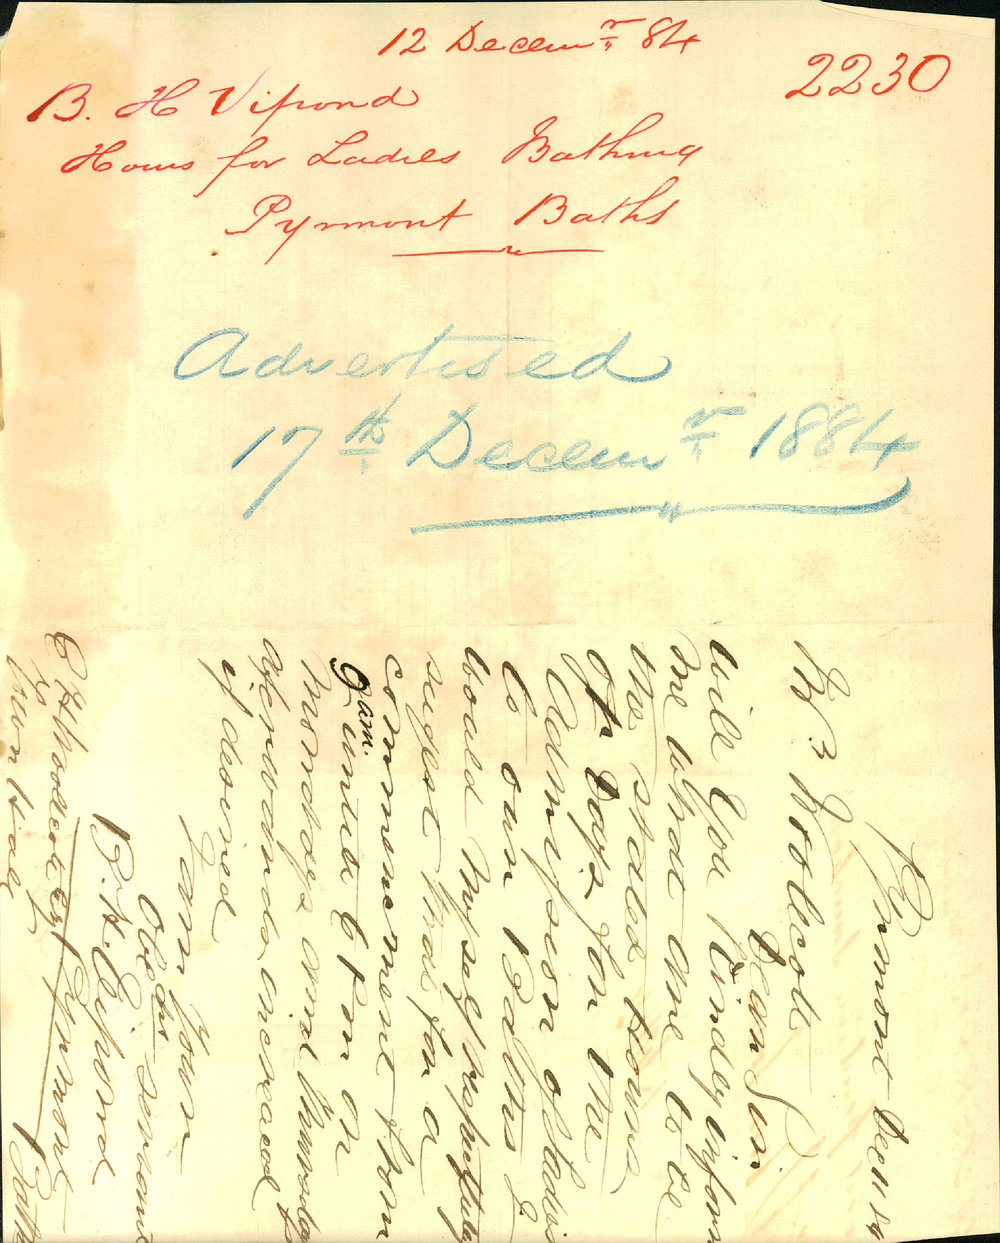 12 Decemr 84
2230
B. H Vipond
Hours for Ladies Bathing
Pymont Baths
Advertised
17th Decemr 1884
Pyrmont Decr 11 84
Woolcott
Dear Sir
Will You Kindly inform
me What are to be
the stated Hours
or Days for the
Admission of Ladies
to our Baths I
would Myself respectfully
sugest that for a
commencement from
9 am. until 6 Pm on
Mondays and Thursdays
afterwards increased
if desired
I am Your
Obedt servant
B. H. Vipond
C H Woolcott Esq Pyrmont Baths
Town Hall